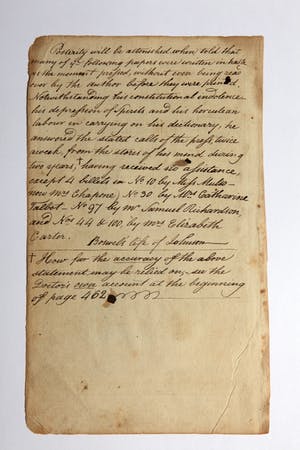 Posterity will be astonished when told that
many of ye following papers were written in haste
as the moment pressed, without even being read
over by the author before they were printed
Notwithstanding his constitutional indolence
his depression of Spirits and his herculean
labour in carrying on his dictionary, he
answered the stated calls of the press, twice
a week, from the stores of his mind during
two years, † having received no assistance
except 4 billets in No 10 by Miss Mulso
now Mrs Chapone, No 30 by Mrs Catherine
Talbot - No 97 by Mr Samuel Richardson,
and Nos 44 & 100, by Mrs Elizabeth
Carter.
Boswels life of Johnson
† How far the accuracy of the above
statement may be relied on, see the
Doctor's own account at the beginning
of page 462